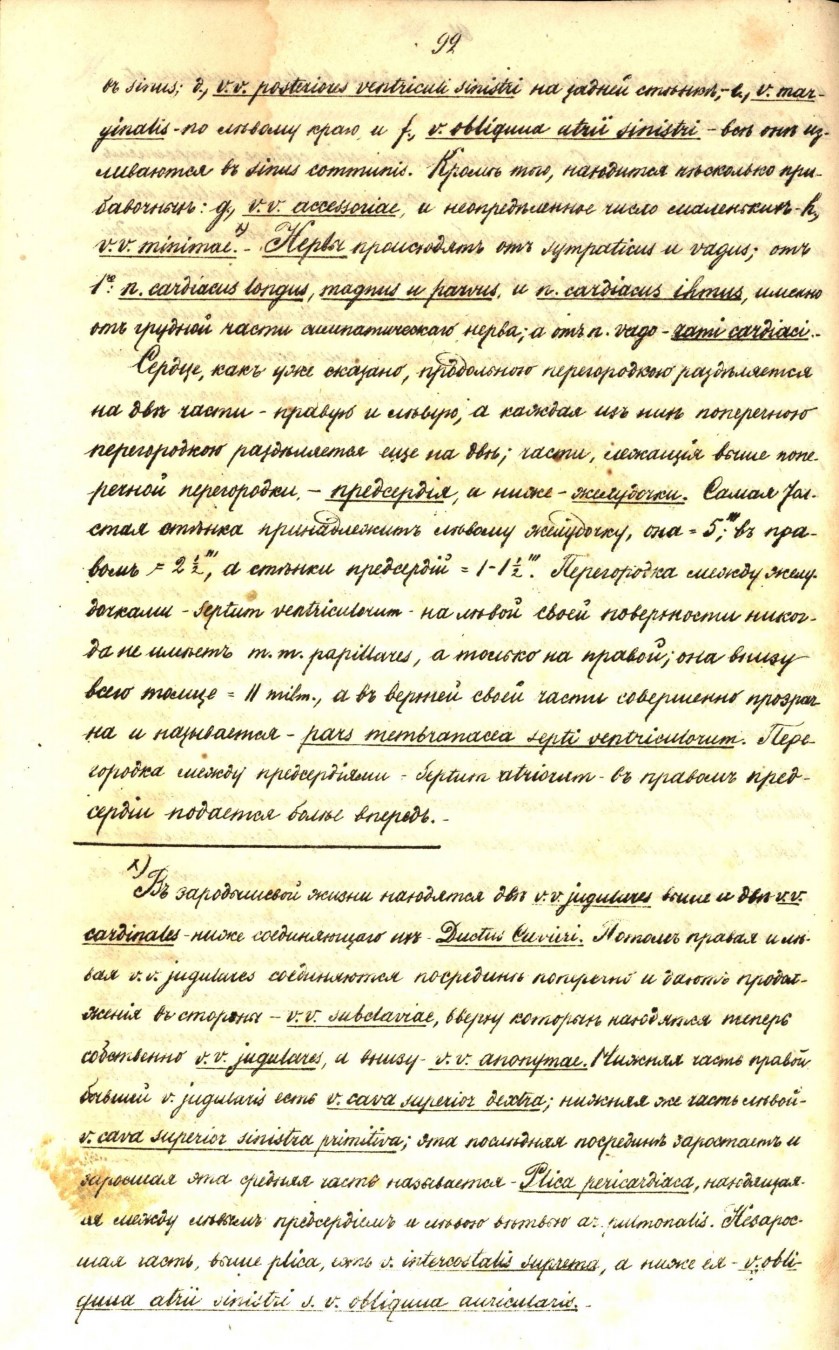 92
въ sinus; d, v.v. posteriores ventriculi sinistri на задней стѣнкѣ, - e, v. mar-
ginalis - по лѣвому краю и f, v. obliqua atrii sinistri - всѣ онѣ из-
ливаются въ sinus communis. Кромѣ того, находится нѣсколько при-
бавочныхъ: g, v.v. accessoriae, и неопредѣленное число маленькихъ - h,
v.v. minimae.*) - Нервы происходятъ отъ sympaticus и vagus; отъ
1го n. cardiacus longus, magnus и parvus, и n. cardiacus ihmus, именно
отъ грудной части симпатическаго нерва; а отъ n. vago - rami cardiaci. -
Сердце, какъ уже сказано, продольною перегородкою раздѣляется
на двѣ части - правую и лѣвую, а каждая изъ нихъ поперечною
перегородкою раздѣляется еще на двѣ; части, лежащія выше попе-
речной перегородки, - предсердія, а ниже - желудочки. Самая тол-
стая стѣнка принадлежитъ лѣвому желудочку, она = 5''', въ пра-
вомъ = 2 ½''', а стѣнки предсердій = 1 - 1 ½'''. Перегородка между желу-
дочками - septum ventriculorum - на лѣвой своей поверхности никог-
да не имѣетъ m.m. papillares, а только на правой; она внизу
всего толще = 11 milm., а въ верхней своей части совершенно прозрач-
на и называется - pars membranacea septi ventriculorum. Пере-
городка между предсердіями - septum atriorum - въ правомъ пред-
сердіи подается болѣе впередъ. -
*) Въ зародышевой жизни находятся двѣ v.v. jugulares выше и двѣ v.v.
cardinales - ниже соединяющаго ихъ - Ductus Cuvieri. Потомъ правая и лѣ-
вая v.v. jugulares соединяются посрединѣ поперечно и даютъ продол-
женія въ стороны - v.v. subclaviae, вверху которыхъ находятся теперь
собственно v.v. jugulares, а внизу - v.v. anonymae. Нижняя часть правой
бывшей v. jugularis есть v. cava superior dextra; нижняя же часть лѣвой -
v. cava superior sinistra primitiva; эта послѣдняя посрединѣ заростаетъ и
заросшая эта средняя часть называется - Plica pericardiaca, находящая-
ся между лѣвымъ предсердіемъ и лѣвою вѣтвью ar. pulmonalis. Незарос-
шая часть, выше plica, есть v. intercostalis suprema, а ниже ея - v. obli-
qua atrii sinistri s. v. obliqua auricularis. -